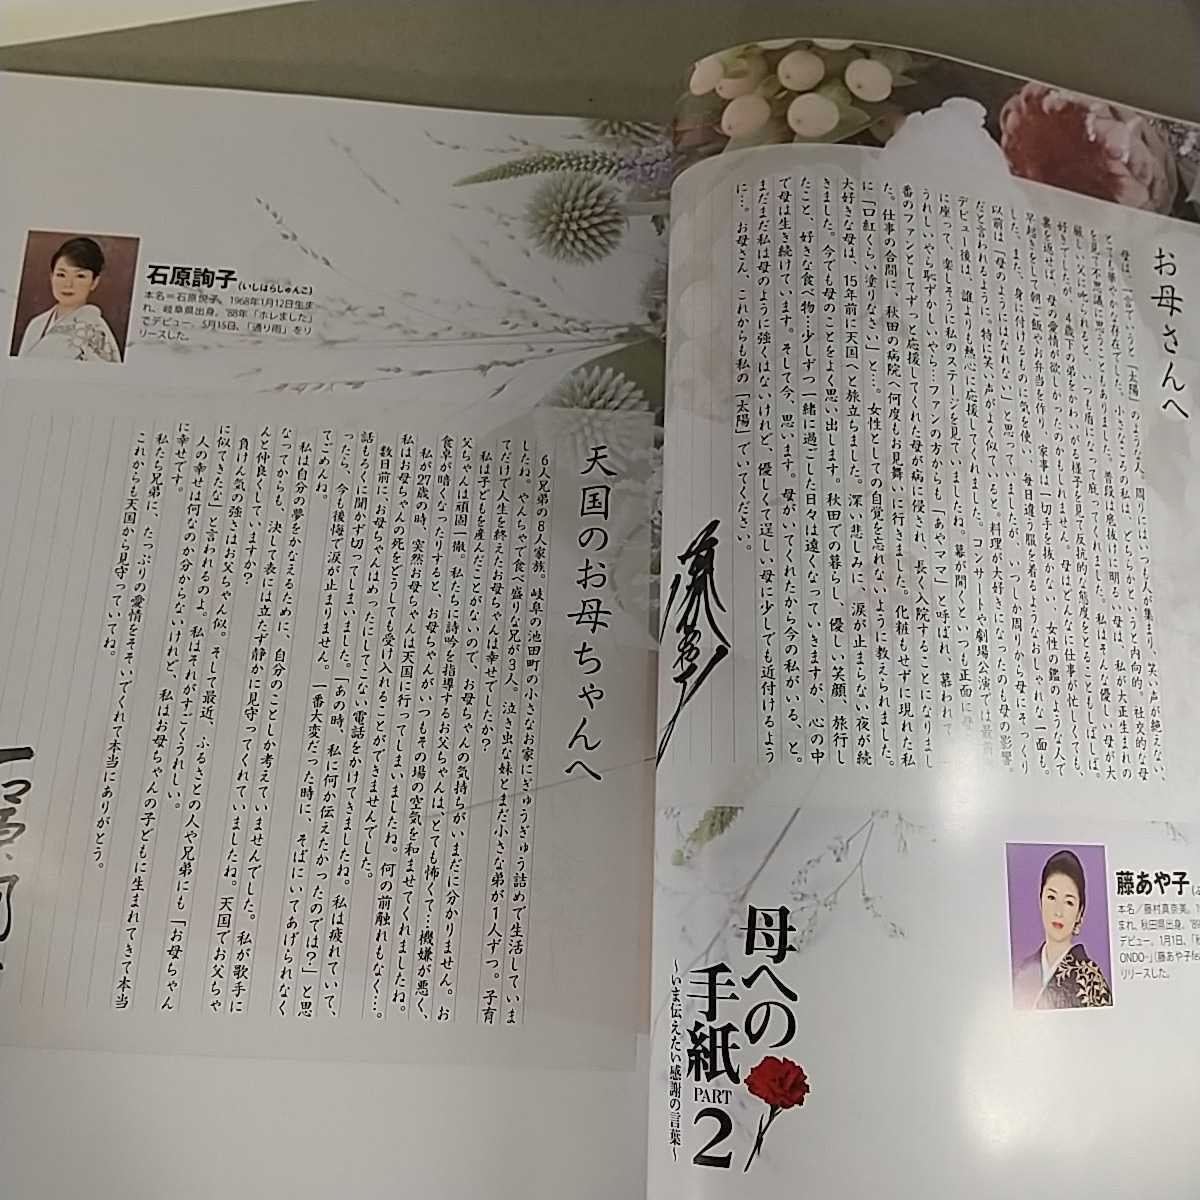 母への
手紙
PART
2
～いま伝えたい感謝の言葉～
藤あや子
本名／藤村真奈美。
まれ、秋田県出身。
デビュー。1月1日、
リリースした。
お母さんへ
母は、一言でいうと「太陽」のような人。周りにはいつも人が集まり、笑い声が絶えない、
とても華やかな存在でした。小さなころの私は、どちらかというと内向的。社交的な母
を見て不思議に思うこともありました。普段は底抜けに明るい母は、私が大正生まれの
厳しい父に叱られると、いつも盾になって庇ってくれました。私はそんな優しい母が大
好きでしたが、4歳下の弟をかわいがる様子を見て反抗的な態度をとることもしばしば。
裏を返せば、母の愛情が欲しかったのかもしれません。母はどんなに仕事が忙しくても、
早起きをして朝ご飯やお弁当を作り、家事は一切手を抜かない、女性の鑑のような人で
した。また、身に付けるものに気を使い、毎日違う服を着るようなおしゃれな一面も。
以前は「母のようにはなれない」と思っていましたが、いつしか周りから母にそっくり
だと言われるように。特に笑い声がよく似ていると。料理が大好きになったのも母の影響。
デビュー後は、誰よりも熱心に応援してくれました。コンサートや劇場公演では最前
に座って、楽しそうに私のステージを見ていましたね。幕が開くといつも正面に母
うれしいやら恥ずかしいやら…ファンの方からも「あやママ」と呼ばれ、慕われて
番のファンとしてずっと応援してくれた母が病に侵され、長く入院することになりまし
た。仕事の合間に、秋田の病院へ何度もお見舞いに行きました。化粧もせずに現れた私
に「口紅くらい塗りなさい」と…。女性としての自覚を忘れないように教えられました。
大好きな母は、15年前に天国へと旅立ちました。深い悲しみに、涙が止まらない夜が続
きました。今でも母のことをよく思い出します。秋田での暮らし、優しい笑顔、旅行し
たこと、好きな食べ物…少しずつ一緒に過ごした日々は遠くなっていきますが、心の中
で母は生き続けています。そして今、思います。母がいてくれたから今の私がいる、と。
まだまだ私は母のように強くはないけれど、優しくて逞しい母に少しでも近付けるよう
に…。お母さん、これからも私の「太陽」でいてください。
石原詢子(いしはらじゅんこ)
本名＝石原悦子。1968年1月12日生ま
れ、岐阜県出身。'88年「ホレました」
でデビュー。5月15日、「通り雨」をリ
リースした。
天国のお母ちゃんへ
6人兄弟の8人家族。岐阜の池田町の小さなお家にぎゅうぎゅう詰めで生活していま
したね。やんちゃで食べ盛りな兄が3人。泣き虫な妹とまだ小さな弟が1人ずつ。子育
てだけで人生を終えたお母ちゃんは幸せでしたか？
私は子どもを産んだことがないので、お母ちゃんの気持ちがいまだに分かりません。お
父ちゃんは頑固一徹。私たちに詩吟を指導するお父ちゃんは、とても怖くて…機嫌が悪く、
食卓が暗くなったりすると、お母ちゃんがいつもその場の空気を和ませてくれましたね。
私が27歳の時、突然お母ちゃんは天国に行ってしまいましたね。何の前触れもなく…。
私はお母ちゃんの死をどうしても受け入れることができませんでした。
数日前に、お母ちゃんはめったにしてこない電話をかけてきましたね。私は疲れていて、
話もろくに聞かず切ってしまいました。「あの時、私に何か伝えたかったのでは？」と思
ったら、今も後悔で涙が止まりません。一番大変だった時に、そばにいてあげられなく
てごめんね。
私は自分の夢をかなえるために、自分のことしか考えていませんでした。私が歌手に
なってからも、決して表には立たず静かに見守ってくれていましたね。天国でお父ちゃ
んと仲良くしていますか？
負けん気の強さはお父ちゃん似。そして最近、ふるさとの人や兄弟にも「お母ちゃん
に似てきたな」と言われるのよ。私はそれがすごくうれしい。
人の幸せは何なのか分からないけれど、私はお母ちゃんの子どもに生まれてきて本当
に幸せです。
私たち兄弟に、たっぷりの愛情をそそいでくれて本当にありがとう。
これからも天国から見守っていてね。